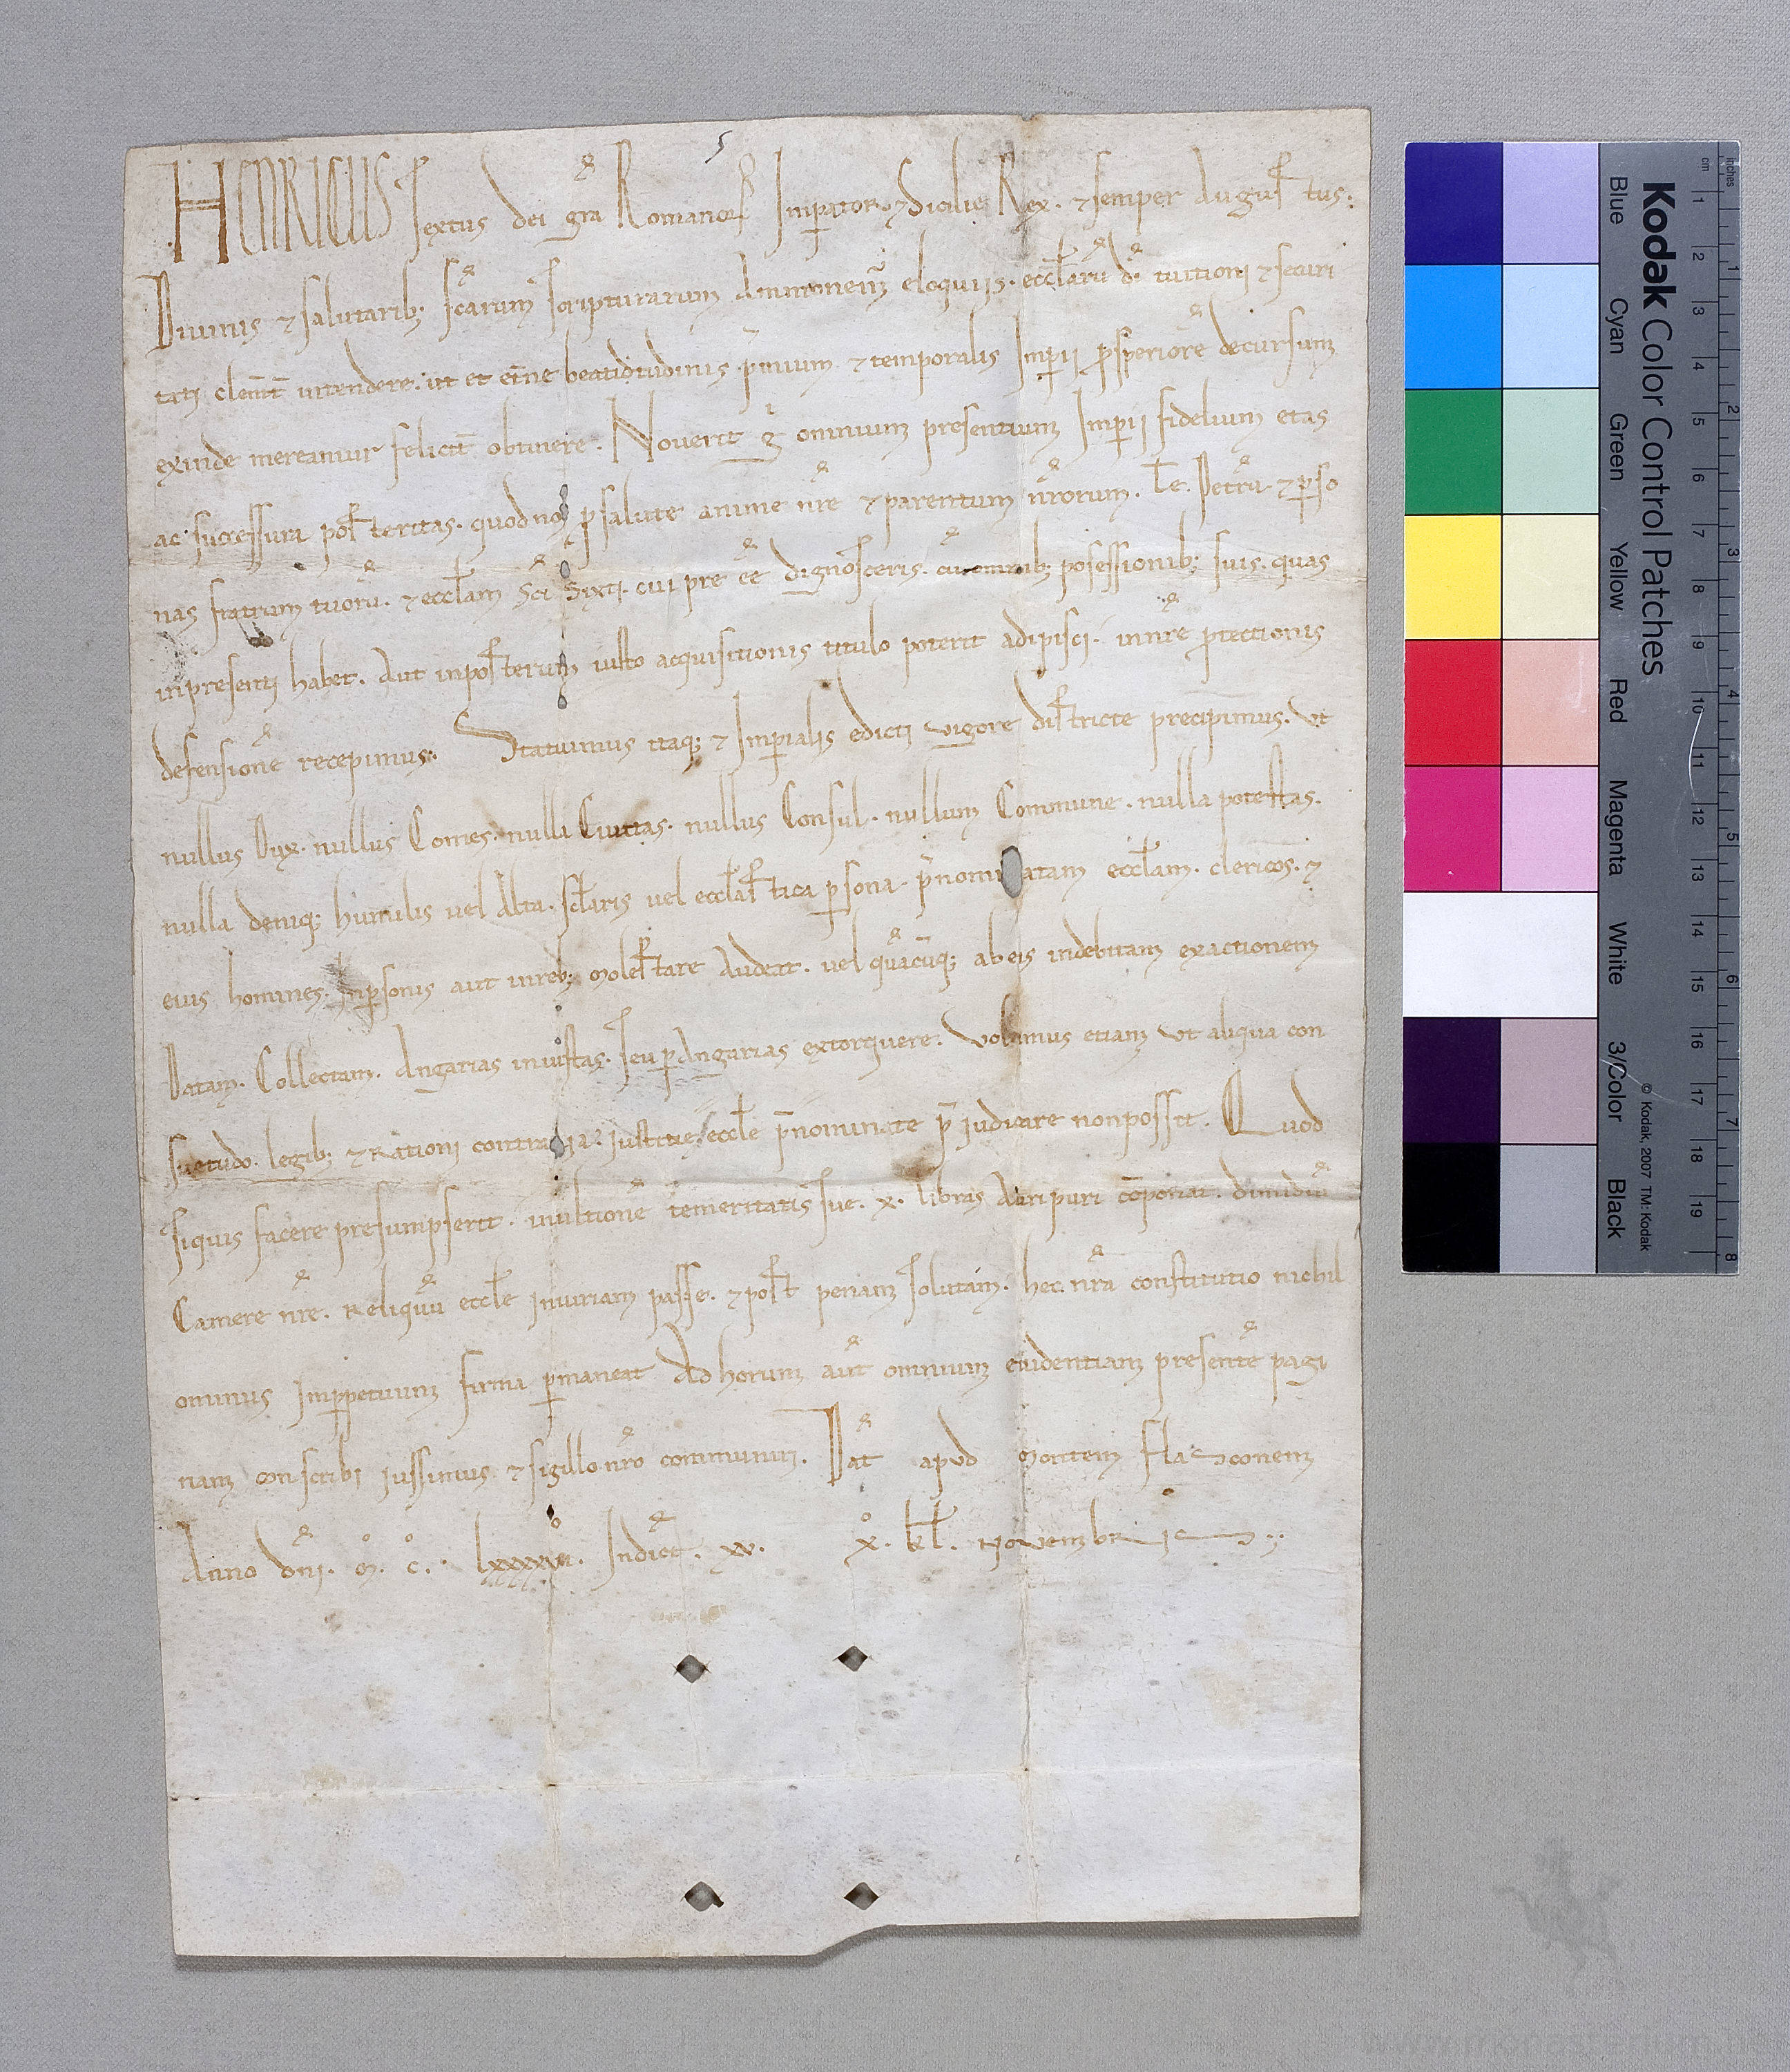 5
HENRICUS Sextus dei gra Romanor Imperator. & Sicilie Rex. & semper Augustus:
Diuinis & salutarib; scarum scripturarum Ammonemur eloquiis. eccliaru di tuitioni & securi
tati clement intendere. ut et eterne beatidudinis pmium & temporalis Imperii prosperiore decursum
exinde mereamur felicit obtinere. Nouerit g omnium presentium Imperii fidelium etas
ac successura posteritas. quod nos p salute anime nre & parentum nrorum. Te. Petru. & perso
nas fratrum tuoru. & eccliam Sci Sixti. cui pre ee dignosceris. cu omnib; posessionib; suis. quas
inpresenti habet. Aut inposterum iusto acquisitionis titulo poterit adipisci. in nre ptectionis
defensione recepimus: Statuimus itaq; & Imperialis edicti vigore districte precipimus. Vt
nullus Dux. nullus Comes. nulla Ciuitas. nullus Consul. nullum Commune. nulla potestas.
nulla deniq; humilis vel Alta. sclaris vel ecclastica psona. pnominatam eccliam. clericos. &
eius homines. inpsonis aut inreb; Molestare Audeat. vel quacuq; ab eis indebitam exactionem
Datam. Collectam. Angarias iniustas. seu pAngarias extorquere. Volumus etiam Vt aliqua con
suetudo. legib; & Rationi contraria. iustitie eccle pnominate p iudicare non possit. Quod
siquis facere presumpserit. inultione temeritatis sue. x. libras Auri puri coponat. dimidiu
Camere nre. Reliquu eccle iniuriam passe. & post penam solutam. hec nra constitutio nichil
ominus Imppetuum firma pmaneat Ad horum aut omnium euidentiam presente pagi
nam conscribi iussimus. & sigillo nro communiri. Dat apud Montem flasconem
Anno dni. M. C. lxxxxvi. Indict. xv. x. kl. Novembris
Kodak Color Control Patches
Blue Cyan Green Yellow Red Magenta White 3/Color Black
© Kodak, 2007 TM: Kodak
inches 1 2 3 4 5 6 7 8
cm 1 2 3 4 5 6 7 8 9 10 11 12 13 14 15 16 17 18 19
www.monasterium.net